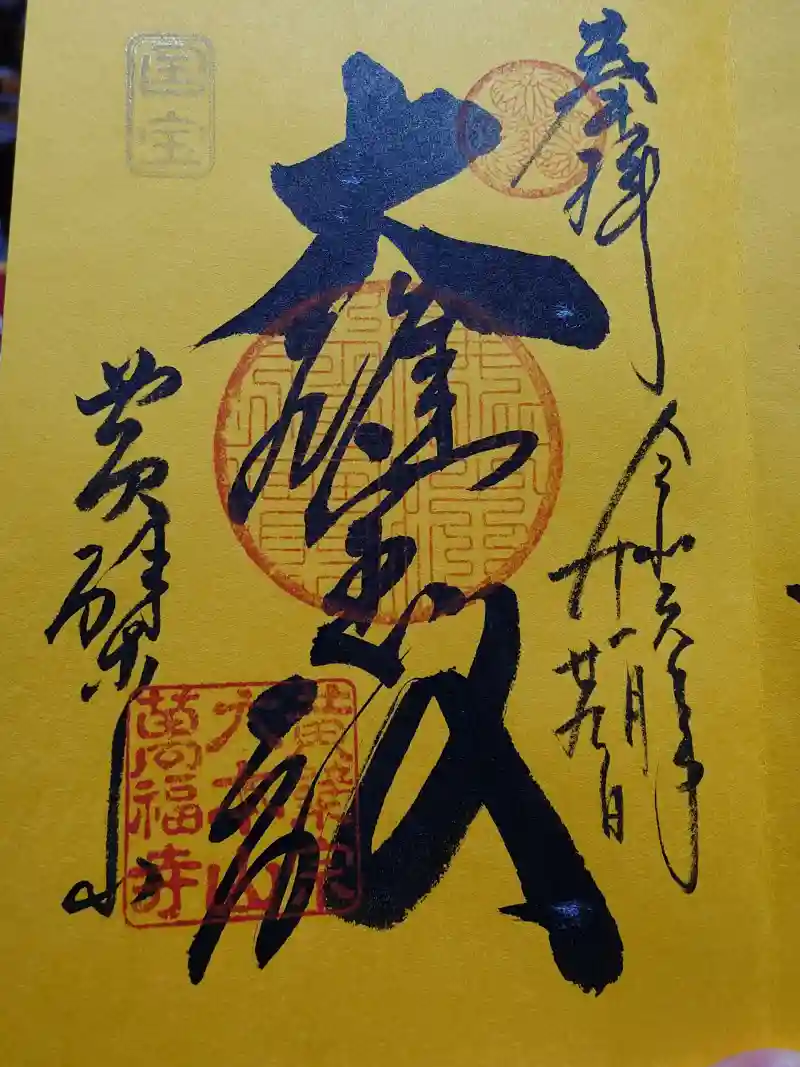 奉拝
令和六年
十一月廿九日
大雄宝殿
黄檗山
国宝
黄檗宗
大本山
萬福寺